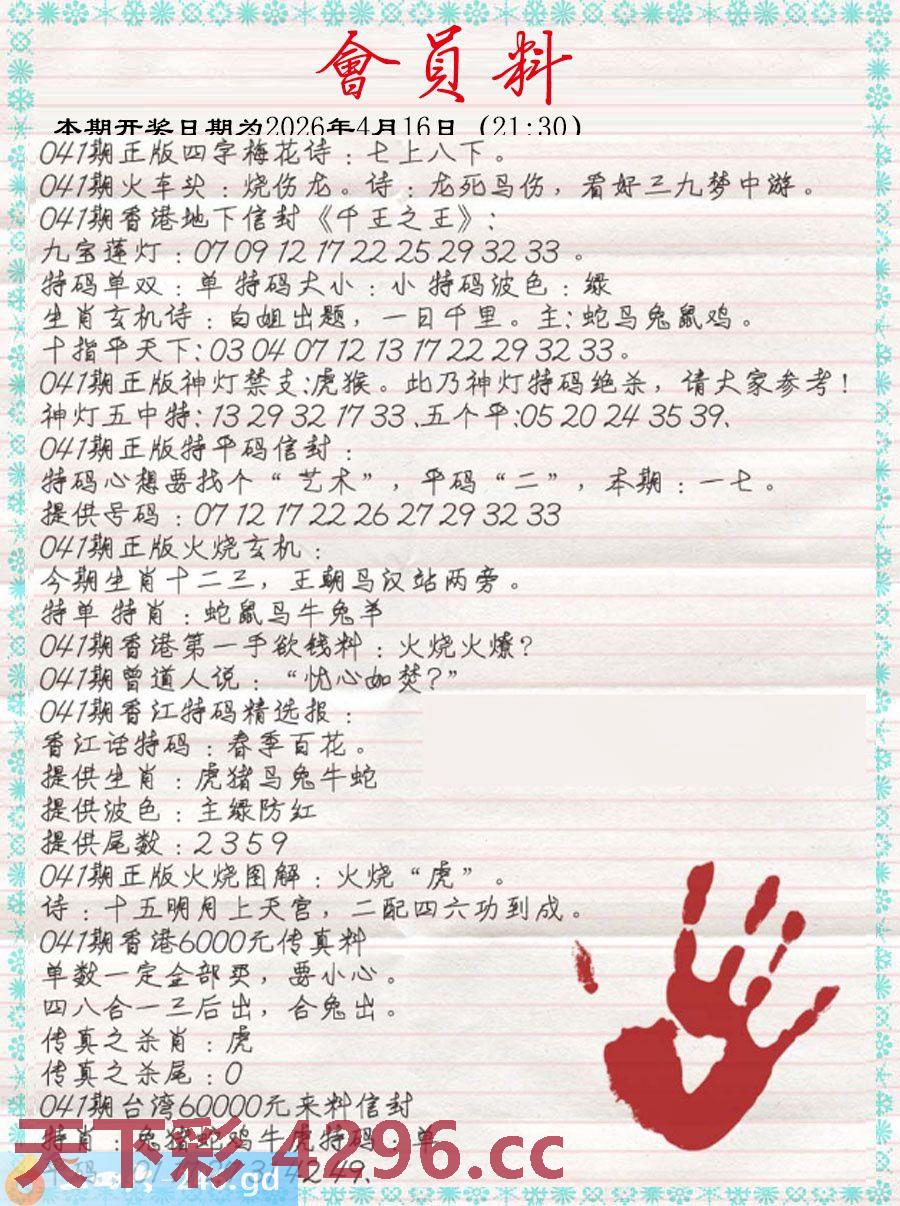 會員料
本期开奖日期为2026年4月16日（21:30）
041期正版四字梅花诗：七上八下。
041期火车头：烧伤龙。诗：龙死马伤，看好三九梦中游。
041期香港地下信封《千王之王》：
九宝莲灯：07 09 12 17 22 25 29 32 33 。
特码单双：单 特码大小：小 特码波色：绿
生肖玄机诗：白姐出题，一日千里。主：蛇马兔鼠鸡。
十指平天下：03 04 07 12 13 17 22 29 32 33。
041期正版神灯禁支：虎猴。此乃神灯特码绝杀，请大家参考！
神灯五中特：13 29 32 17 33 、五个平：05 20 24 35 39、
041期正版特平码信封：
特码心想要找个“艺术”，平码“二”，本期：一七。
提供号码：07 12 17 22 26 27 29 32 33
041期正版火烧玄机：
今期生肖十二三，王朝马汉站两旁。
特单 特肖：蛇鼠马牛兔羊
041期香港第一手欲钱料：火烧火燎？
041期曾道人说：“忧心如焚？”
041期香江特码精选报：
香江话特码：春季百花。
提供生肖：虎猪马兔牛蛇
提供波色：主绿防红
提供尾数：2 3 5 9
041期正版火烧图解：火烧“虎”。
诗：十五明月上天宫，二配四六功到成。
041期香港6000元传真料
单数一定全部买，要小心。
四八合一三后出，合兔出。
传真之杀肖：虎
传真之杀尾：0
041期台湾60000元来料信封
特肖：兔猪蛇鸡牛虎特码：单
天下彩 4296.cc
42 49、